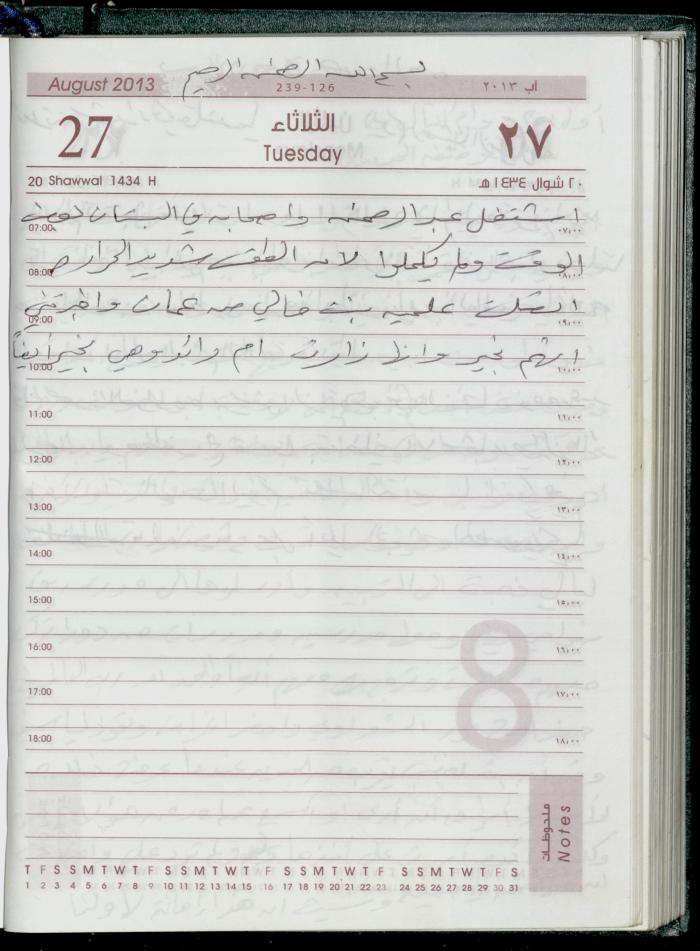 بسم الله الرحمن الرحيم
August 2013
239-126
آب ٢٠١٣
27
الثلاثاء
Tuesday
٢٧
20 Shawwal 1434 H
٢٠ شوال ١٤٣٤ هـ
اشتغل عبد الرحمن واصحابه في البستان
07:00 ٠٧,٠٠
الوقت ولم يكملوا لان الطقس شديد الحرارة
08:00 ٠٨,٠٠
اتصلت علي بنت خالي من عمان واخبرتني
09:00 ٠٩,٠٠
انهم بخير وانا زارت ام وائد وهي بخير ايضاً
10:00 ١٠,٠٠
11:00 ١١,٠٠
12:00 ١٢,٠٠
13:00 ١٣,٠٠
14:00 ١٤,٠٠
15:00 ١٥,٠٠
16:00 ١٦,٠٠
17:00 ١٧,٠٠
18:00 ١٨,٠٠
8
ملحوظات
Notes
T F S S M T W T F S S M T W T F S S M T W T F S S M T W T F S
1 2 3 4 5 6 7 8 9 10 11 12 13 14 15 16 17 18 19 20 21 22 23 24 25 26 27 28 29 30 31